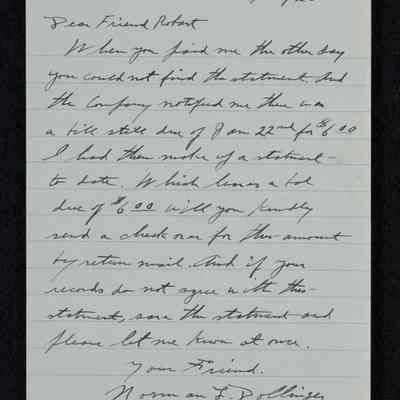 Dear Friend Robert
When you paid me the other day
you could not find the statment. And
the Company notified me there was
a bill still due of Jan 22nd for $6.00
I had them make up a statment
to date. Which leaves a bal
due of $6.00 will you kindly
send a check over for this amount
by return mail. And if your
records do not agree with this
statment, save the statment and
please let me know at once.
Your Friend.
Norman L. Dollinger